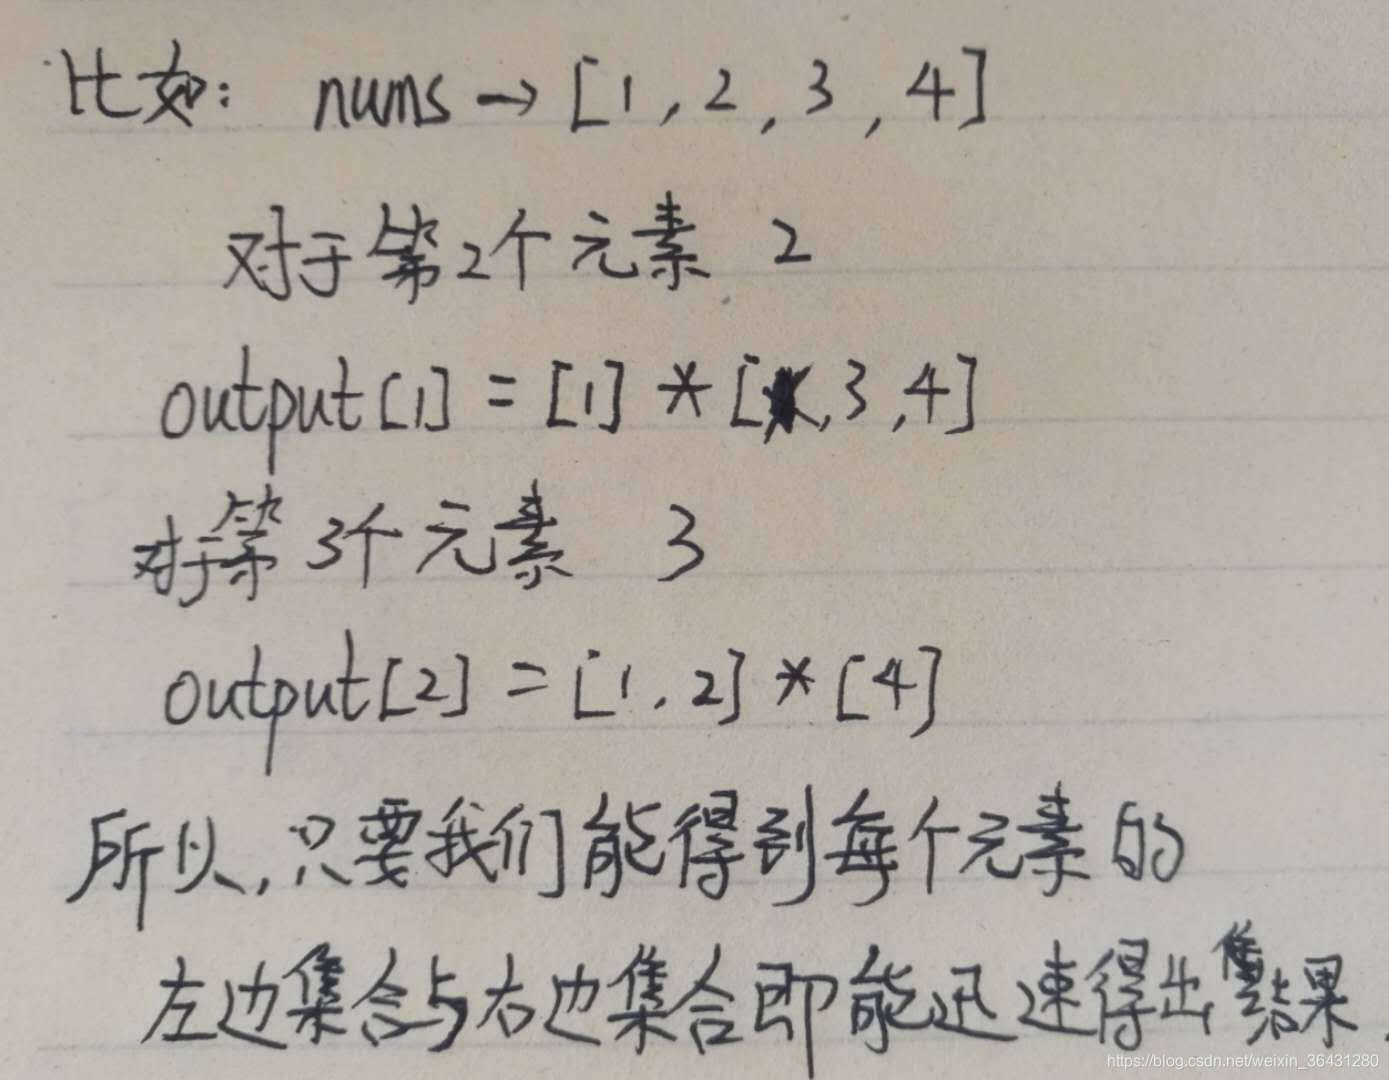 比如: nums → [1, 2, 3, 4]
对于第2个元素 2
output[1] = [1] * [, 3, 4]
对于第3个元素 3
output[2] = [1, 2] * [4]
所以,只要我们能得到每个元素的
左边集合与右边集合即能迅速得出结果.
https://blog.csdn.net/weixin_36431280